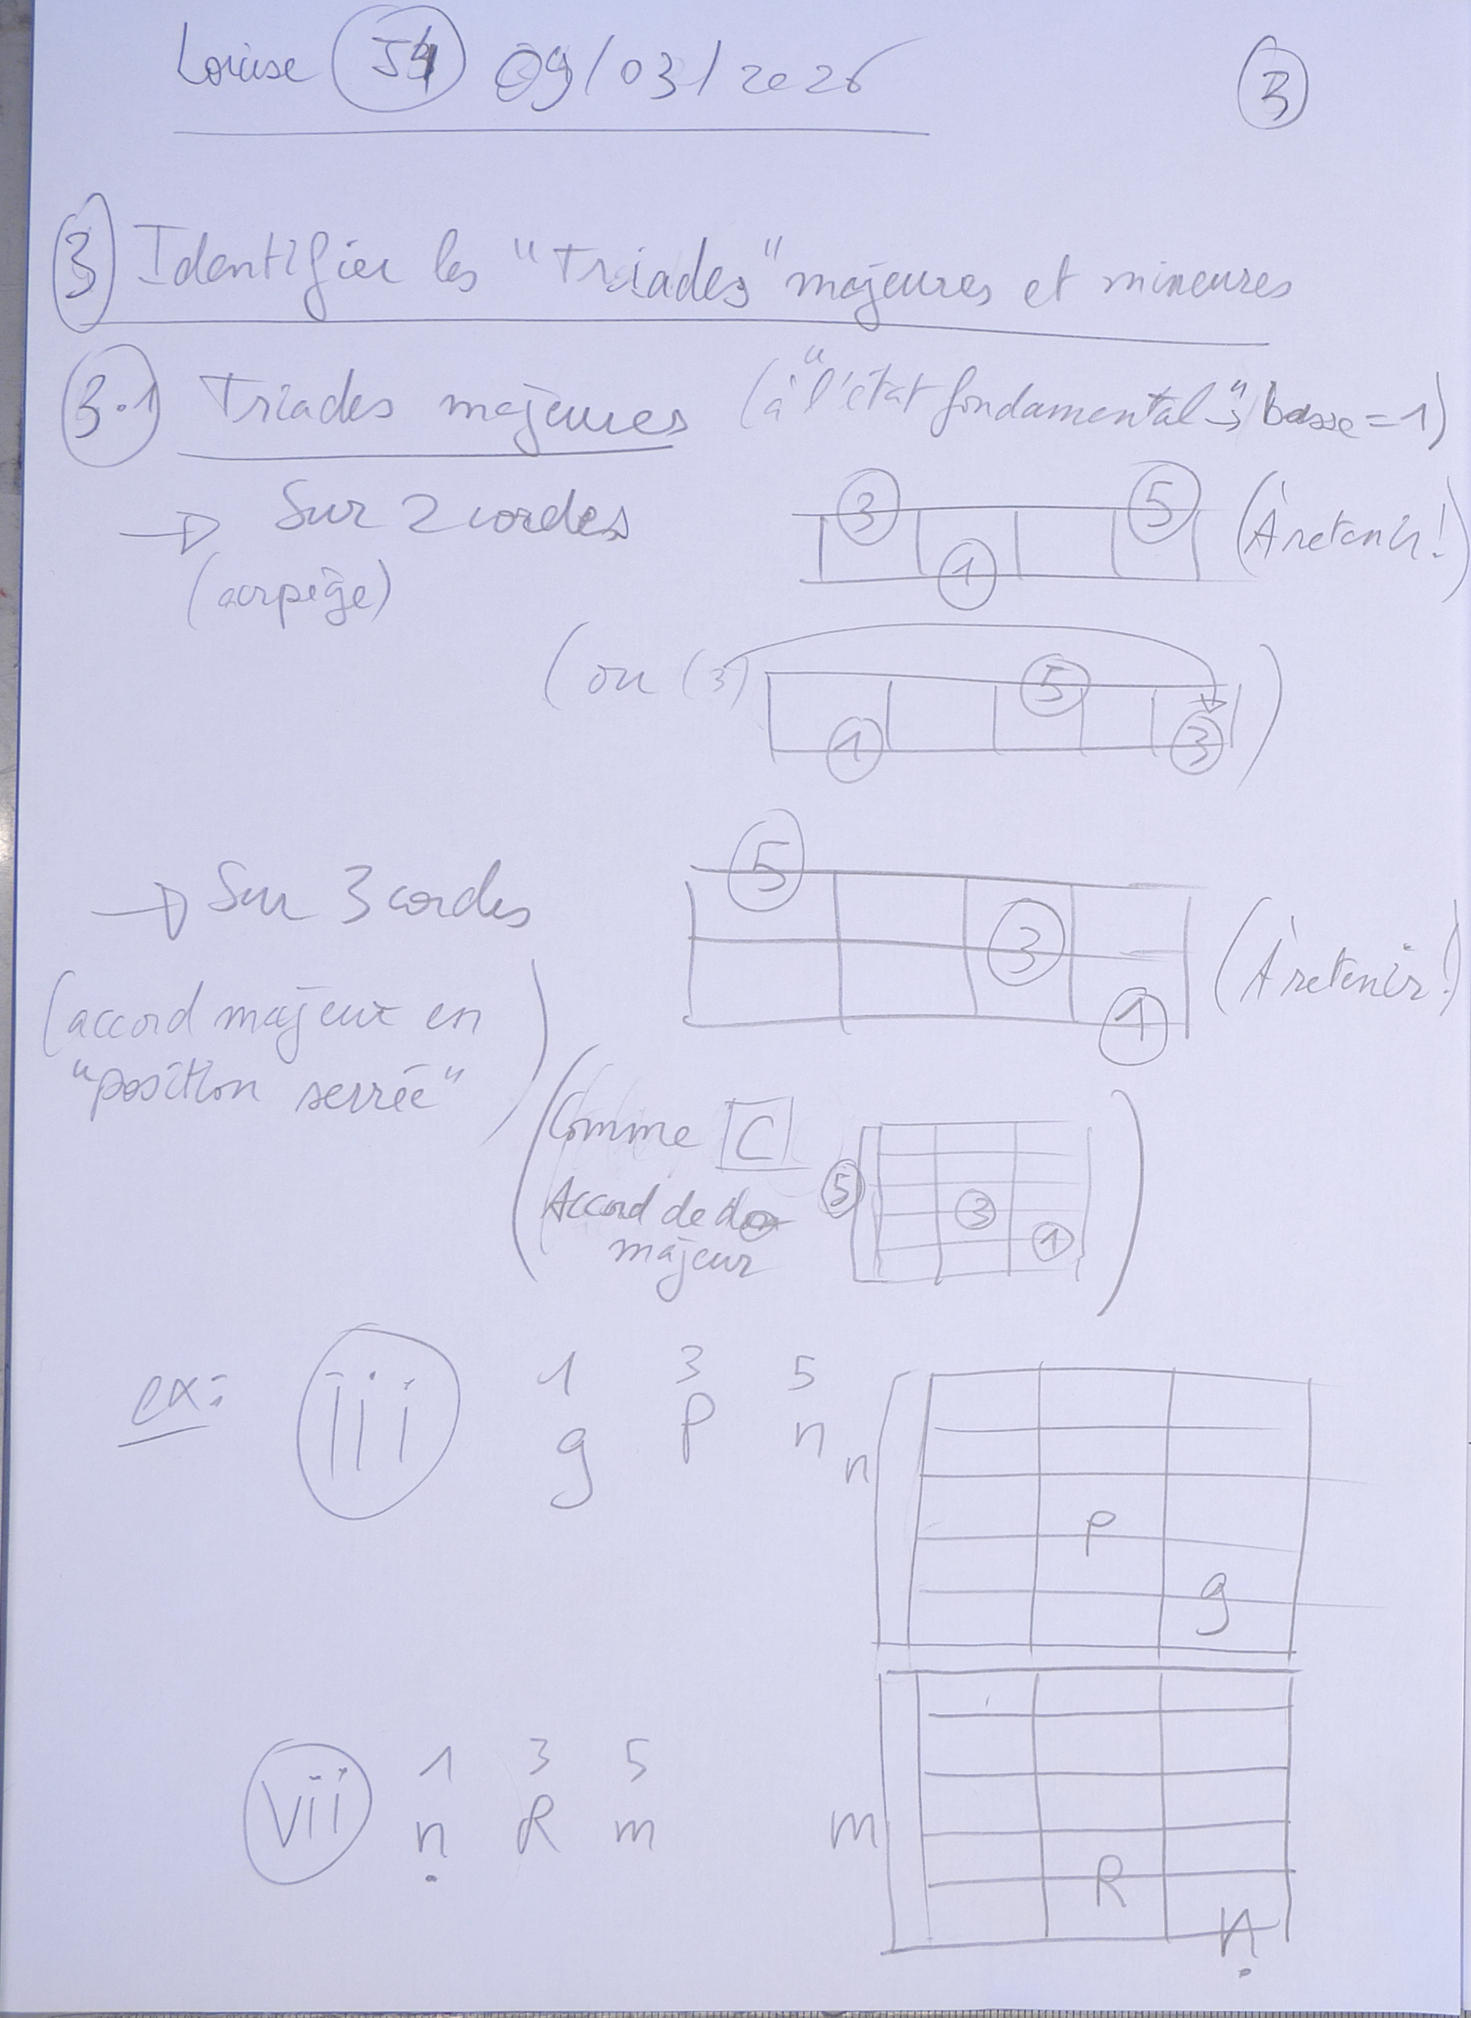 Louise 54 09/03/2026
3
3 Identifier les "Triades" majeures et mineures
3.1 Triades majeures (à "l'état fondamental" → basse = 1)
→ Sur 2 cordes
(arpège)
3 5
1
(À retenir!)
(ou (3)
5
1 3
)
→ Sur 3 cordes
(accord majeur en
"position serrée")
5
3
1
(À retenir!)
(Comme C
Accord de do
majeur
5
3
1
)
ex: iii
1 3 5
g P n
n
P
g
vii
1 3 5
ṇ R m
m
R
ṇ